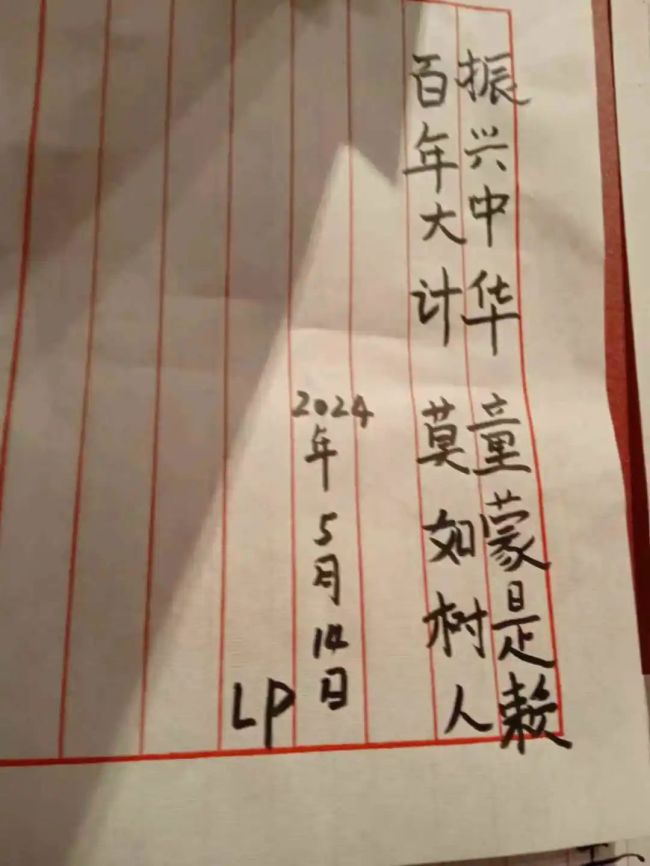 振兴中华 童蒙是赖
百年大计 莫如树人
2024年5月14日
LP